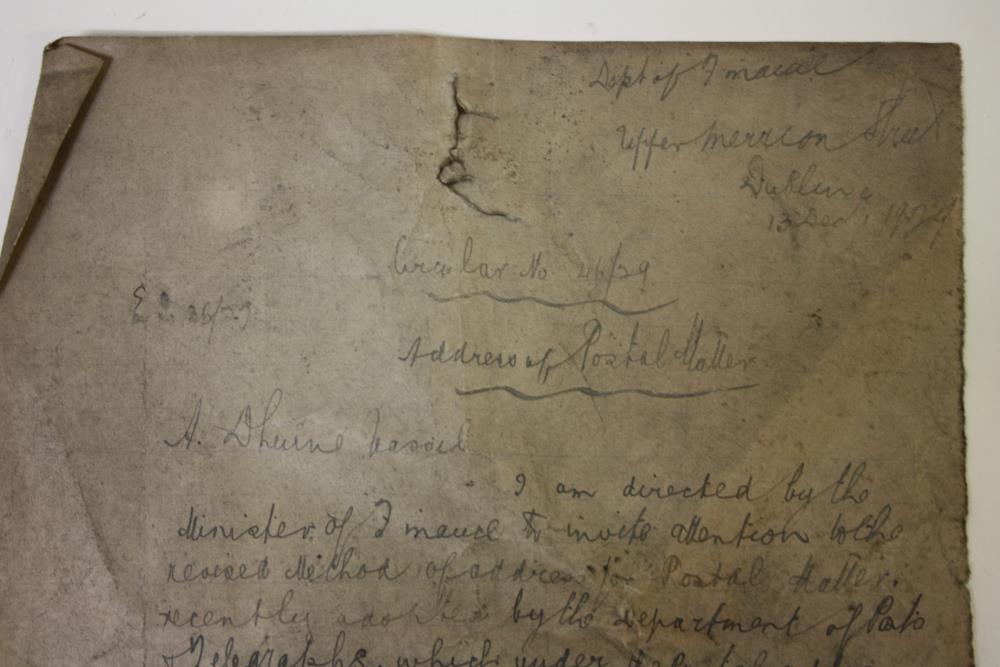 Dept of Finance
Upper Merrion Street
Dublin
Dec 1929
Circular No 46/29
E 36/29
Address of Postal Matter
A. Dhuine Uasail
I am directed by the
Minister of Finance to invite attention to the
revised Method of address for Postal Matter.
recently adopted by the Department of Posts
& Telegraphs, which under